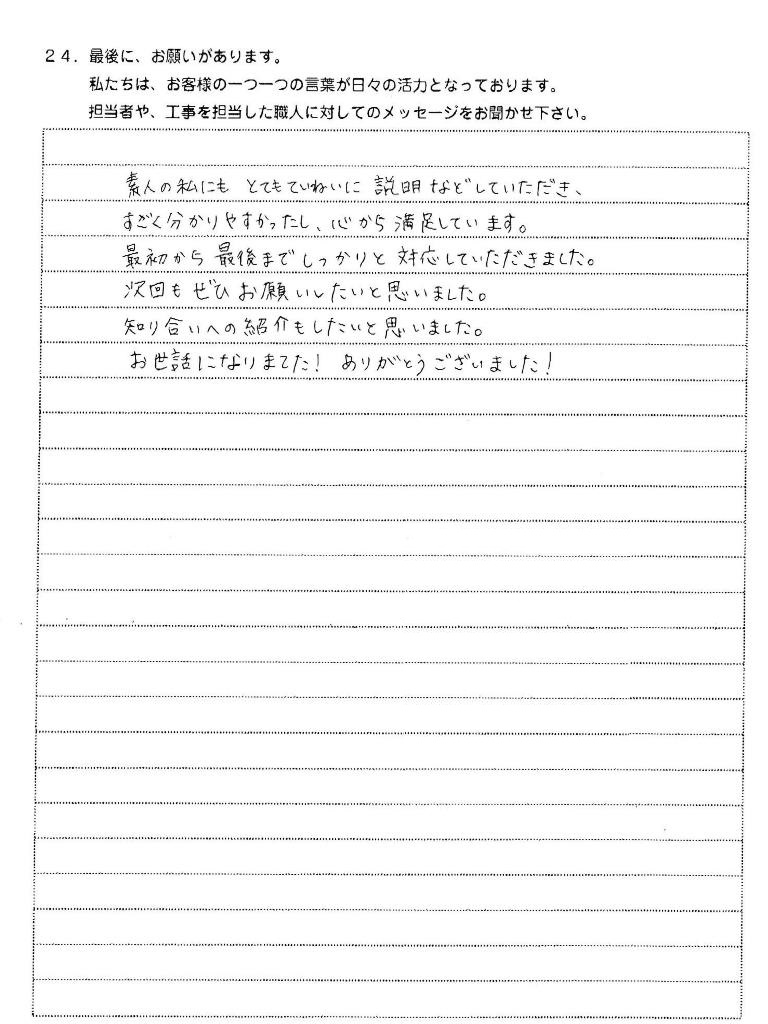 24. 最後に、お願いがあります。
私たちは、お客様の一つ一つの言葉が日々の活力となっております。
担当者や、工事を担当した職人に対してのメッセージをお聞かせ下さい。
素人の私にも とてもていねいに 説明などしていただき、
すごく分かりやすかったし、心から満足しています。
最初から最後までしっかりと対応していただきました。
次回もぜひお願いしたいと思いました。
知り合いへの紹介もしたいと思いました。
お世話になりました! ありがとうございました!